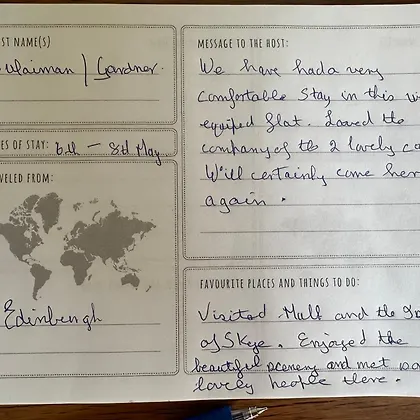 ST NAME(S)
ulaiman / Gardner.
ES OF STAY: 6th – 8th May
VELED FROM:
Edinbengh
MESSAGE TO THE HOST:
We have had a very
comfortable stay in this w
equiped flat. Loved the
company of the 2 lovely ca
Will certainly come her
again.
FAVOURITE PLACES AND THINGS TO DO:
Visited Mull and the Is
of Skye. Enjoyed the
beautiful scenery and met so
lovely people there.